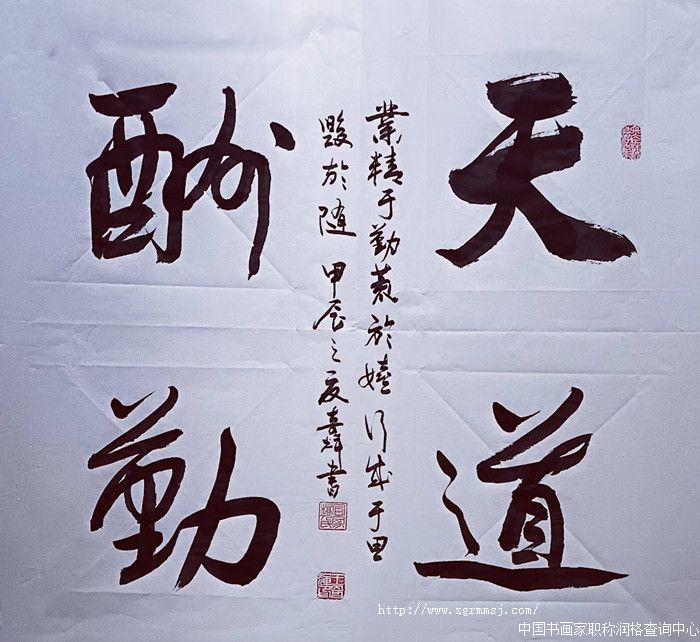 天道
業精于勤荒於嬉 行成于思
毁於随 甲辰之夏喜書
酬勤
http://www.zgrmmsj.com/
中国书画家职称润格查询中心